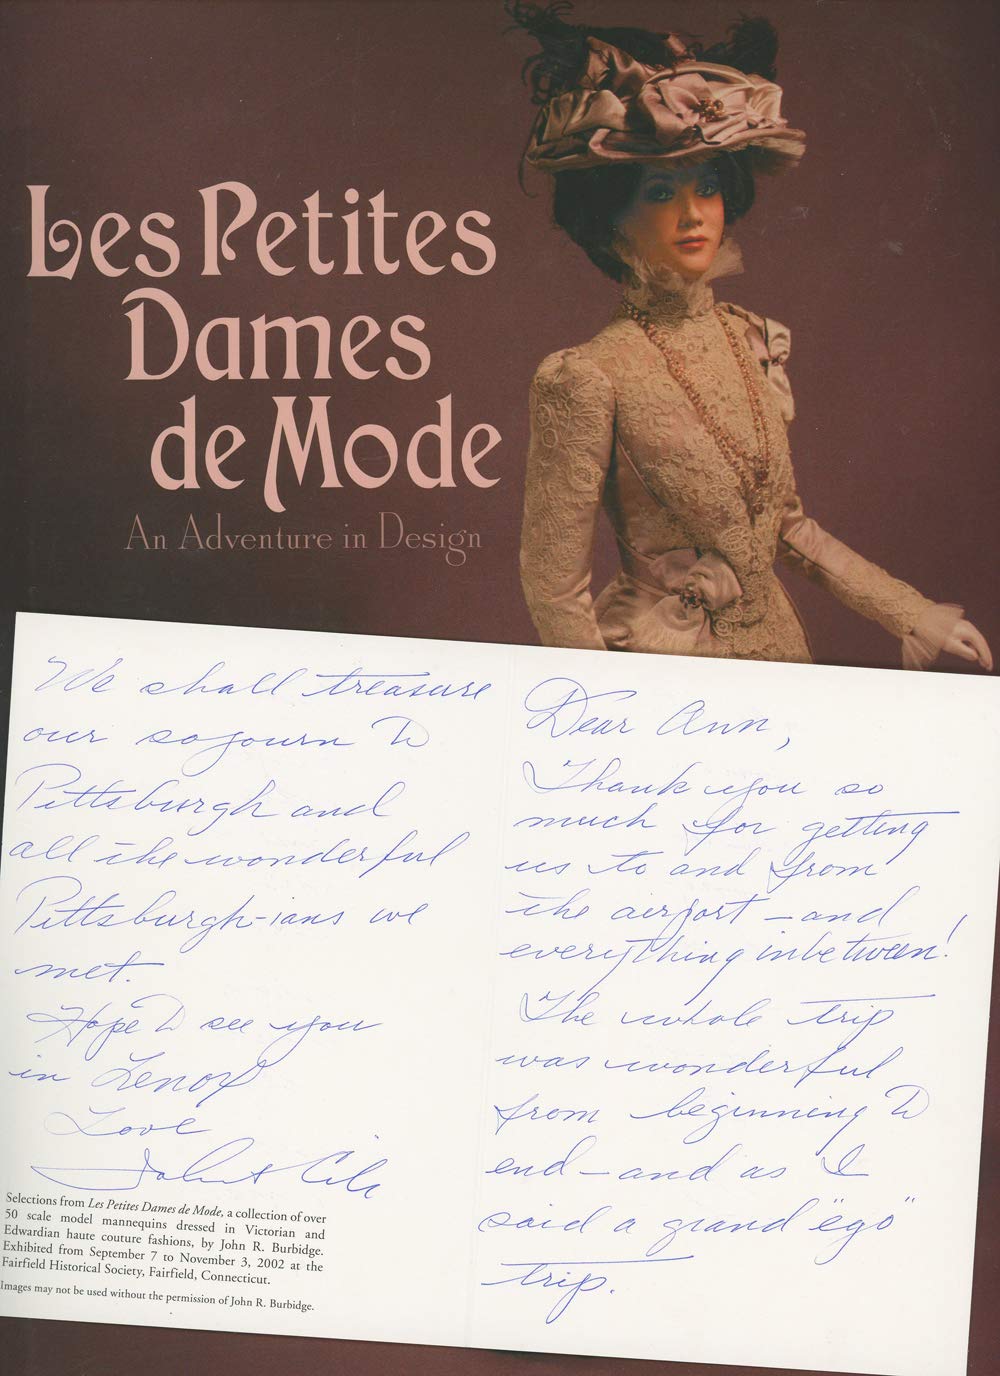 Les Petites
Dames
de Mode
An Adventure in Design
We shall treasure
our sojourn to
Pittsburgh and
all the wonderful
Pittsburgh-ians we
met.
Hope to see you
in Lenox
Love
John &
Selections from Les Petites Dames de Mode, a collection of over
50 scale model mannequins dressed in Victorian and
Edwardian haute couture fashions, by John R. Burbidge.
Exhibited from September 7 to November 3, 2002 at the
Fairfield Historical Society, Fairfield, Connecticut.
Images may not be used without the permission of John R. Burbidge.
Dear Ann,
Thank you so
much for getting
us to and from
the airport – and
everything inbetween!
The whole trip
was wonderful
from beginning to
end – and as I
said a grand "ego"
trip.